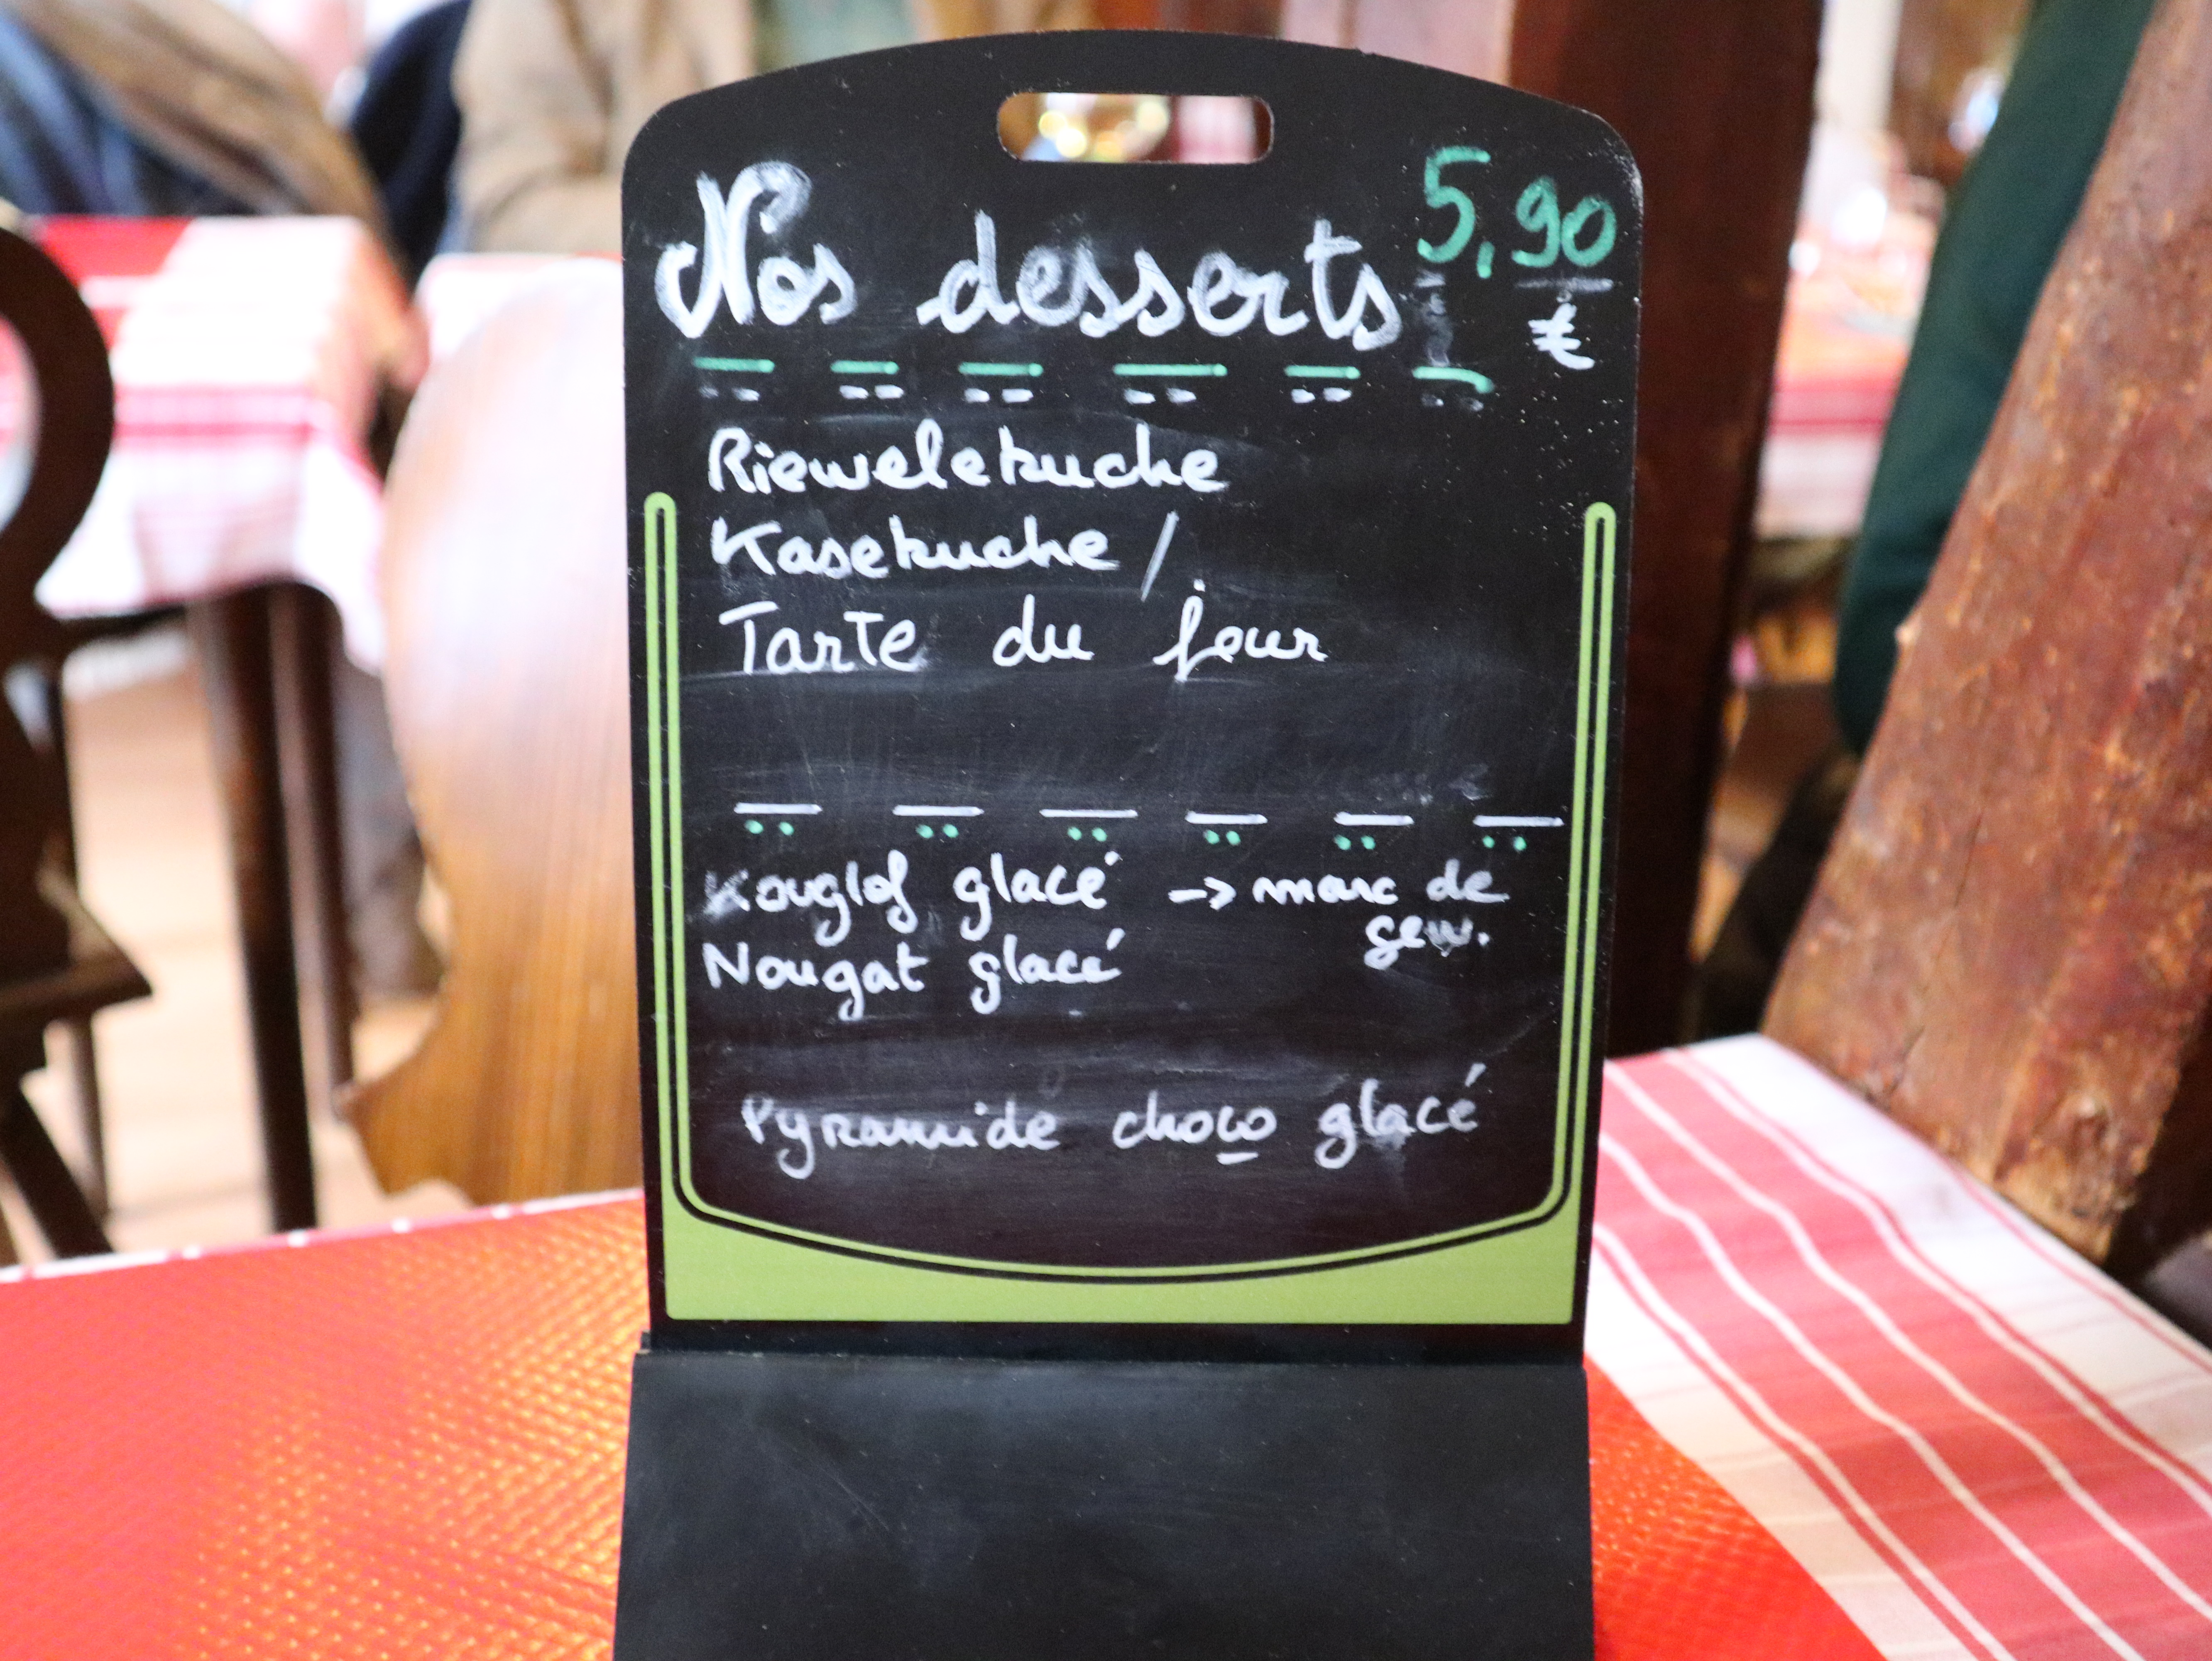 Nos desserts 5,90
€
Riewelekuche
Kasekuche /
Tarte du jour
Kouglof glacé -> marc de
gew.
Nougat glacé
Pyramide choco glacé